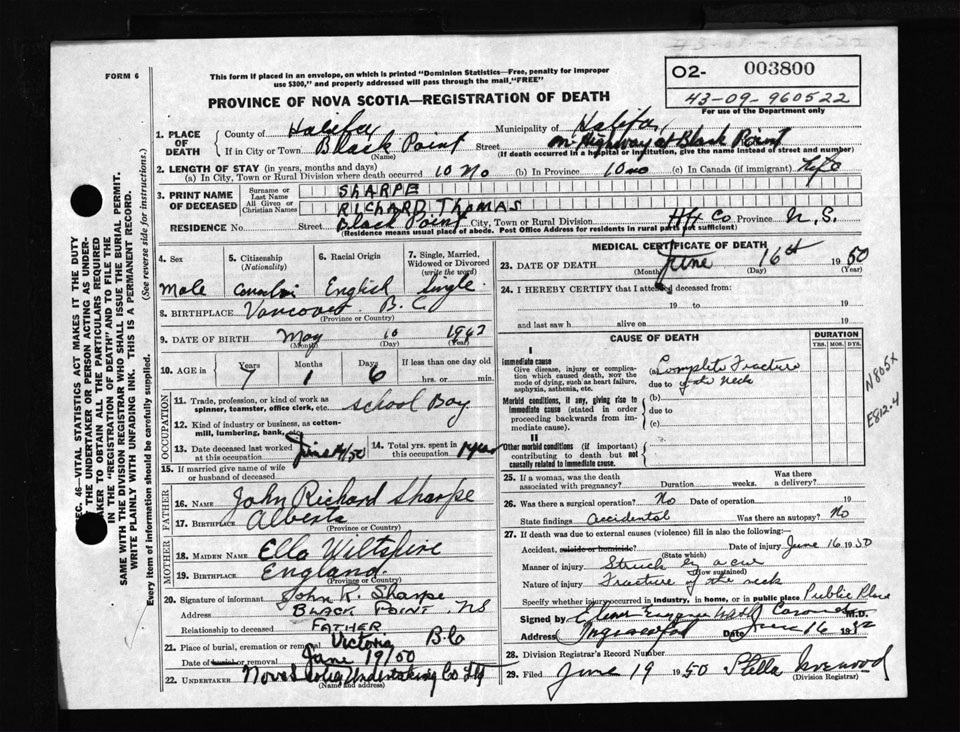 43-09-960522
FORM 6
This form if placed in an envelope, on which is printed "Dominion Statistics—Free, penalty for improper
use $300," and properly addressed will pass through the mail, "FREE"
02- 003800
43-09-960522
For use of the Department only
PROVINCE OF NOVA SCOTIA—REGISTRATION OF DEATH
SEC. 46—VITAL STATISTICS ACT MAKES IT THE DUTY
OF THE UNDERTAKER OR PERSON ACTING AS UNDER-
TAKER TO OBTAIN ALL THE PARTICULARS REQUIRED
IN THE "REGISTRATION OF DEATH" AND TO FILE THE
SAME WITH THE DIVISION REGISTRAR WHO SHALL ISSUE THE BURIAL PERMIT.
WRITE PLAINLY WITH UNFADING INK. THIS IS A PERMANENT RECORD.
Every item of information should be carefully supplied. (See reverse side for instructions.)
1. PLACE OF DEATH County of Halifax Municipality of Halifax
If in City or Town Black Point Street on Highway at Black Point
(Name) (If death occurred in a hospital or institution, give the name instead of street and number)
2. LENGTH OF STAY (in years, months and days)
(a) In City, Town or Rural Division where death occurred 10 Mo (b) In Province 10 mo (c) In Canada (if immigrant) Life
3. PRINT NAME OF DECEASED Surname or Last Name SHARPE
All Given or Christian Names RICHARD THOMAS
RESIDENCE No. Street Black Point City, Town or Rural Division Hfx Co Province N.S.
(Residence means usual place of abode. Post Office Address for residents in rural parts not sufficient)
4. Sex 5. Citizenship (Nationality) 6. Racial Origin 7. Single, Married, Widowed or Divorced (write the word)
Male English Single
8. BIRTHPLACE Vancouver B.C.
(Province or Country)
9. DATE OF BIRTH May 10
(Month) (Day) (Year)
10. AGE in Years Months Days If less than one day old
7 1 6 hrs. or min.
OCCUPATION
11. Trade, profession, or kind of work as
spinner, teamster, office clerk, etc. School Boy
12. Kind of industry or business, as cotton-
mill, lumbering, bank, etc.
13. Date deceased last worked at this occupation June /50 14. Total yrs. spent in this occupation 1 year
15. If married give name of wife
or husband of deceased
FATHER
16. Name John Richard Sharpe
17. Birthplace Alberta
(Province or Country)
MOTHER
18. MAIDEN NAME Ella Wiltshire
19. BIRTHPLACE England
(Province or Country)
20. Signature of informant John R. Sharpe
Address BLACK POINT NS
Relationship to deceased FATHER
21. Place of burial, cremation or removal Victoria B.C
Date of burial or removal June 19/50
22. UNDERTAKER Nova Scotia Undertaking Co Ltd
(Name and address)
MEDICAL CERTIFICATE OF DEATH
23. DATE OF DEATH June 16th 1950
(Month) (Day) (Year)
24. I HEREBY CERTIFY that I attended deceased from:
19 to 19
and last saw h alive on 19
CAUSE OF DEATH DURATION
YRS. MOS. DYS.
I
Immediate cause
Give disease, injury or complica-
tion which caused death, NOT the
mode of dying, such as heart failure,
asphyxia, asthenia, etc.
(a) Complete Fracture
due to of the neck
Morbid conditions, if any, giving rise to
immediate cause (stated in order
proceeding backwards from im-
mediate cause).
(b)
due to
(c)
II
Other morbid conditions (if important)
contributing to death but not
causally related to immediate cause.
N805X
E812-4
25. If a woman, was the death
associated with pregnancy? Duration weeks. Was there a delivery?
26. Was there a surgical operation? No Date of operation 19
State findings accidental Was there an autopsy? No
27. If death was due to external causes (violence) fill in also the following:
Accident, suicide or homicide? Date of injury June 16 1950
(State which)
Manner of injury Struck by a car
(How sustained)
Nature of injury Fracture of the neck
Specify whether injury occurred in industry, in home, or in public place Public Place
Signed by Coroner M.D.
Address Date June 16 19
28. Division Registrar's Record Number
29. Filed June 19 1950 Stella
(Division Registrar)